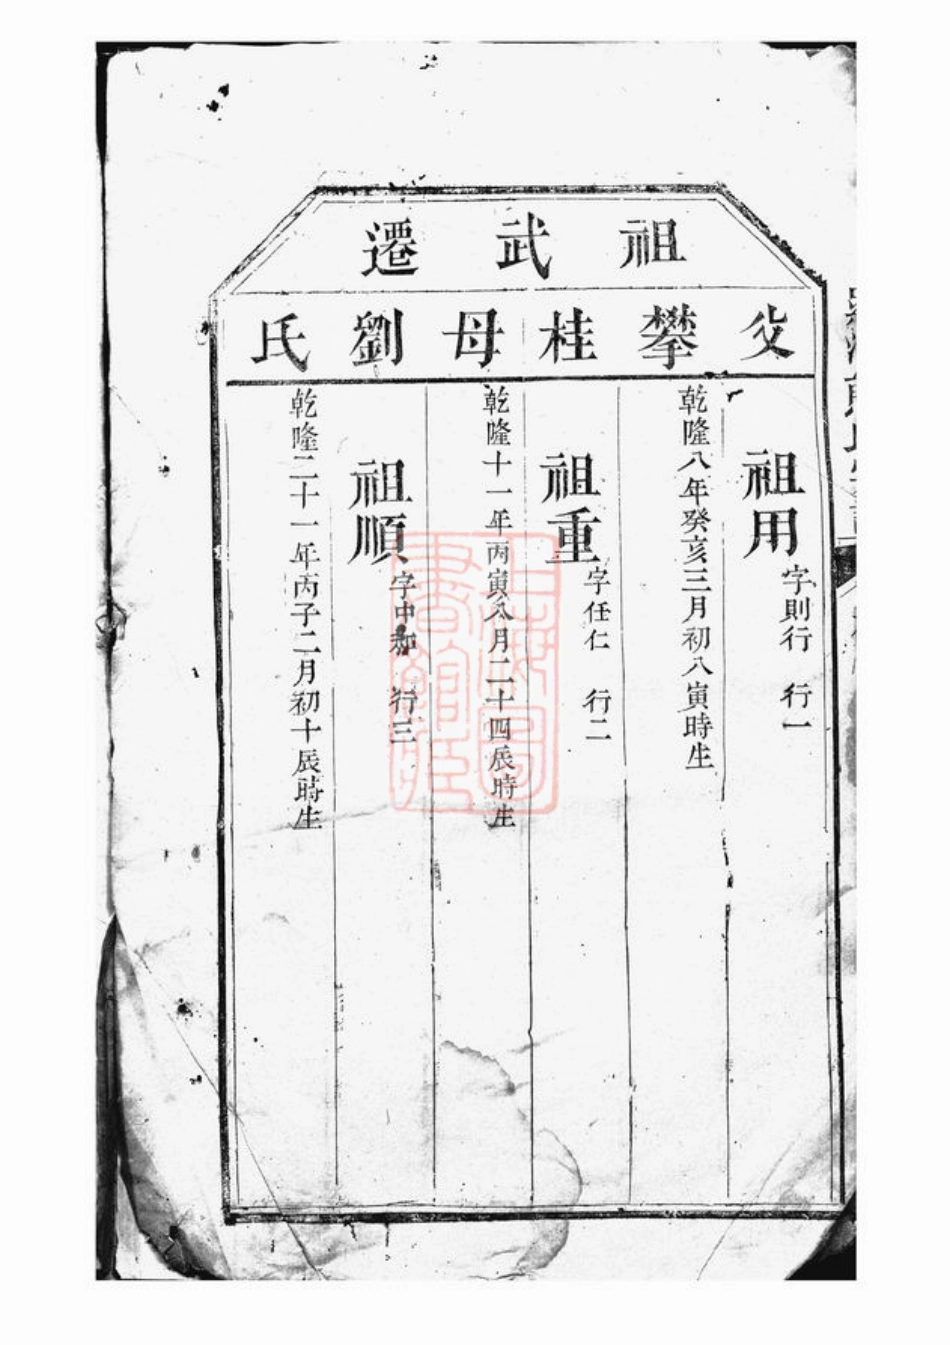 祖武遷
父攀桂母劉氏
祖用
字則行 行一
乾隆八年癸亥三月初八寅時生
祖重
字任仁 行二
乾隆十一年丙寅八月二十四辰時生
祖順
字中和 行三
乾隆二十一年丙子二月初十辰時生
上海圖
書館藏